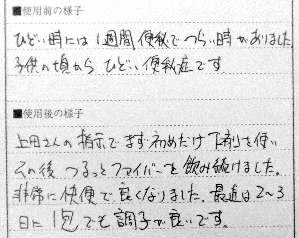 ■使用前の様子
ひどい時には1週間便秘でつらい時がありました。
子供の頃からひどい便秘症です
■使用後の様子
上田さんの指示でまず初めだけ下剤を使い
その後つるっとファイバーを飲み続けました。
非常に快便で良くなりました。最近は2~3
日に1包でも調子が良いです。